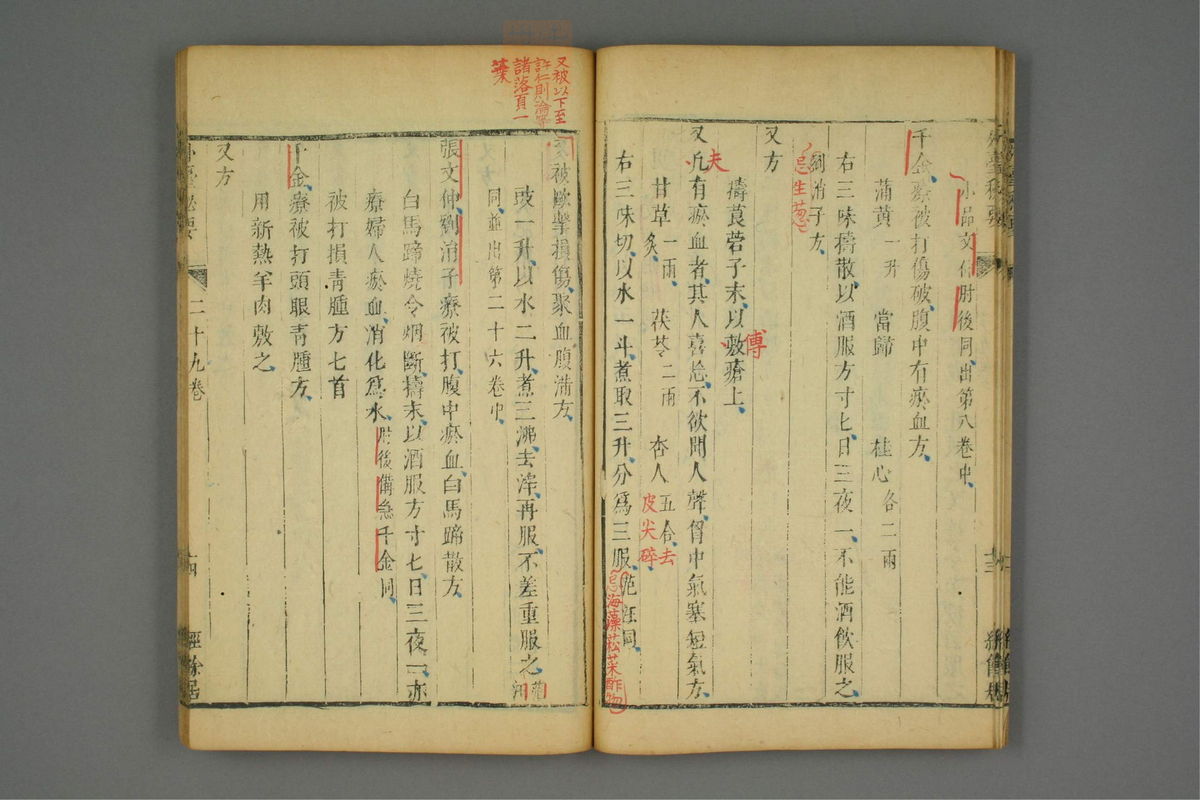 小品文仲肘後同出第八卷中
千金療被打傷破腹中有瘀血方
蒲黄一升 當歸 桂心各二兩
右三味擣散以酒服方寸匕日三夜一不能酒飲服之
忌生葱
劉涓子方
又方
擣莨菪子末以敷瘡上
傅
又凡有瘀血者其人喜忘不欲聞人聲胷中氣塞短氣方
夫
甘草一兩炙 茯苓二兩 杏人五合
去皮尖碎
右三味切以水一斗煮取三升分爲三服
忌海藻菘菜酢物
又被以下至
諸落頁一
葉
又被毆擊損傷聚血腹滿方
豉一升以水二升煮三沸去滓再服不差重服之
同並出第二十六卷中
張文仲劉涓子療被打腹中瘀血白馬蹄散方
白馬蹄燒令烟斷擣末以酒服方寸匕日三夜一亦
療婦人瘀血消化爲水肘後備急千金同
被打損青腫方七首
千金療被打頭眼青腫方
用新熱羊肉敷之
又方
外臺秘要 二十九卷 十四 經餘居